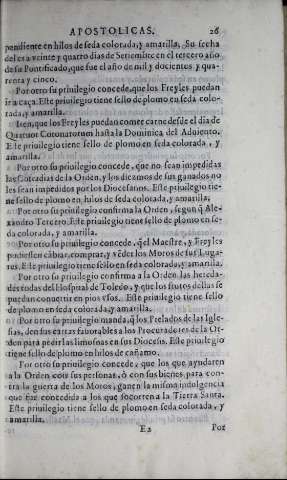 APOSTOLICAS. 26
pendiente en hilos de seda colorada, y amarilla. Su fecha
del era veinte y quatro dias de Setiembre en el tercero año
de su Pontificado, que fue el año de mil y docientos y qua-
renta y cinco.
Por otro su priuilegio concede, que los Freyles puedan
ir a caça. Este priuilegio tiene sello de plomo en seda colo-
rada, y amarilla.
Iten, que los Freyles puedan comer carne desde el dia de
Quatuor Coronatorum hasta la Dominica del Aduiento.
Este priuilegio tiene sello de plomo en seda colorada, y
amarilla.
Por otro su priuilegio concede, que no sean impedidas
las Cofradias de la Orden, y los diezmos de sus ganados no
les sean impedidos por los Diocesanos. Este priuilegio tie-
ne sello de plomo en hilos de seda colorada, y amarilla.
Por otro su priuilegio confirma la Orden, segun q̃ Ale-
xandro Tercero. Este priuilegio tiene sello de plomo en se-
da colorada, y amarilla.
Por otro su priuilegio concede, q̃ el Maestre, y Freyles
pudiessen cãbiar, comprar, y vẽder los Moros de sus Luga-
res. Este priuilegio tiene sello en seda colorada, y amarilla.
Por otro su priuilegio confirma a la Orden las hereda-
des todas del Hospital de Toledo, y que los frutos dellas se
puedan conuertir en pios vsos. Este priuilegio tiene sello
de plomo en seda colorada, y amarilla.
Por otro su priuilegio manda, q̃ los Prelados de las Igle-
sias, den sus cartas fauorables a los Procuradores de la Or-
den para pedir las limosnas en sus Diocesis. Este priuilegio
tiene sello de plomo en hilos de cañamo.
Por otro su priuilegio concede, que los que ayudaren
a la Orden con sus personas, ò con sus bienes para con-
tra la guerra de los Moros, ganen la misma indulgencia
que fue concedida a los que socorren a la Tierra Santa.
Este priuilegio tiene sello de plomo en seda colorada, y
amarilla.
E2 Por